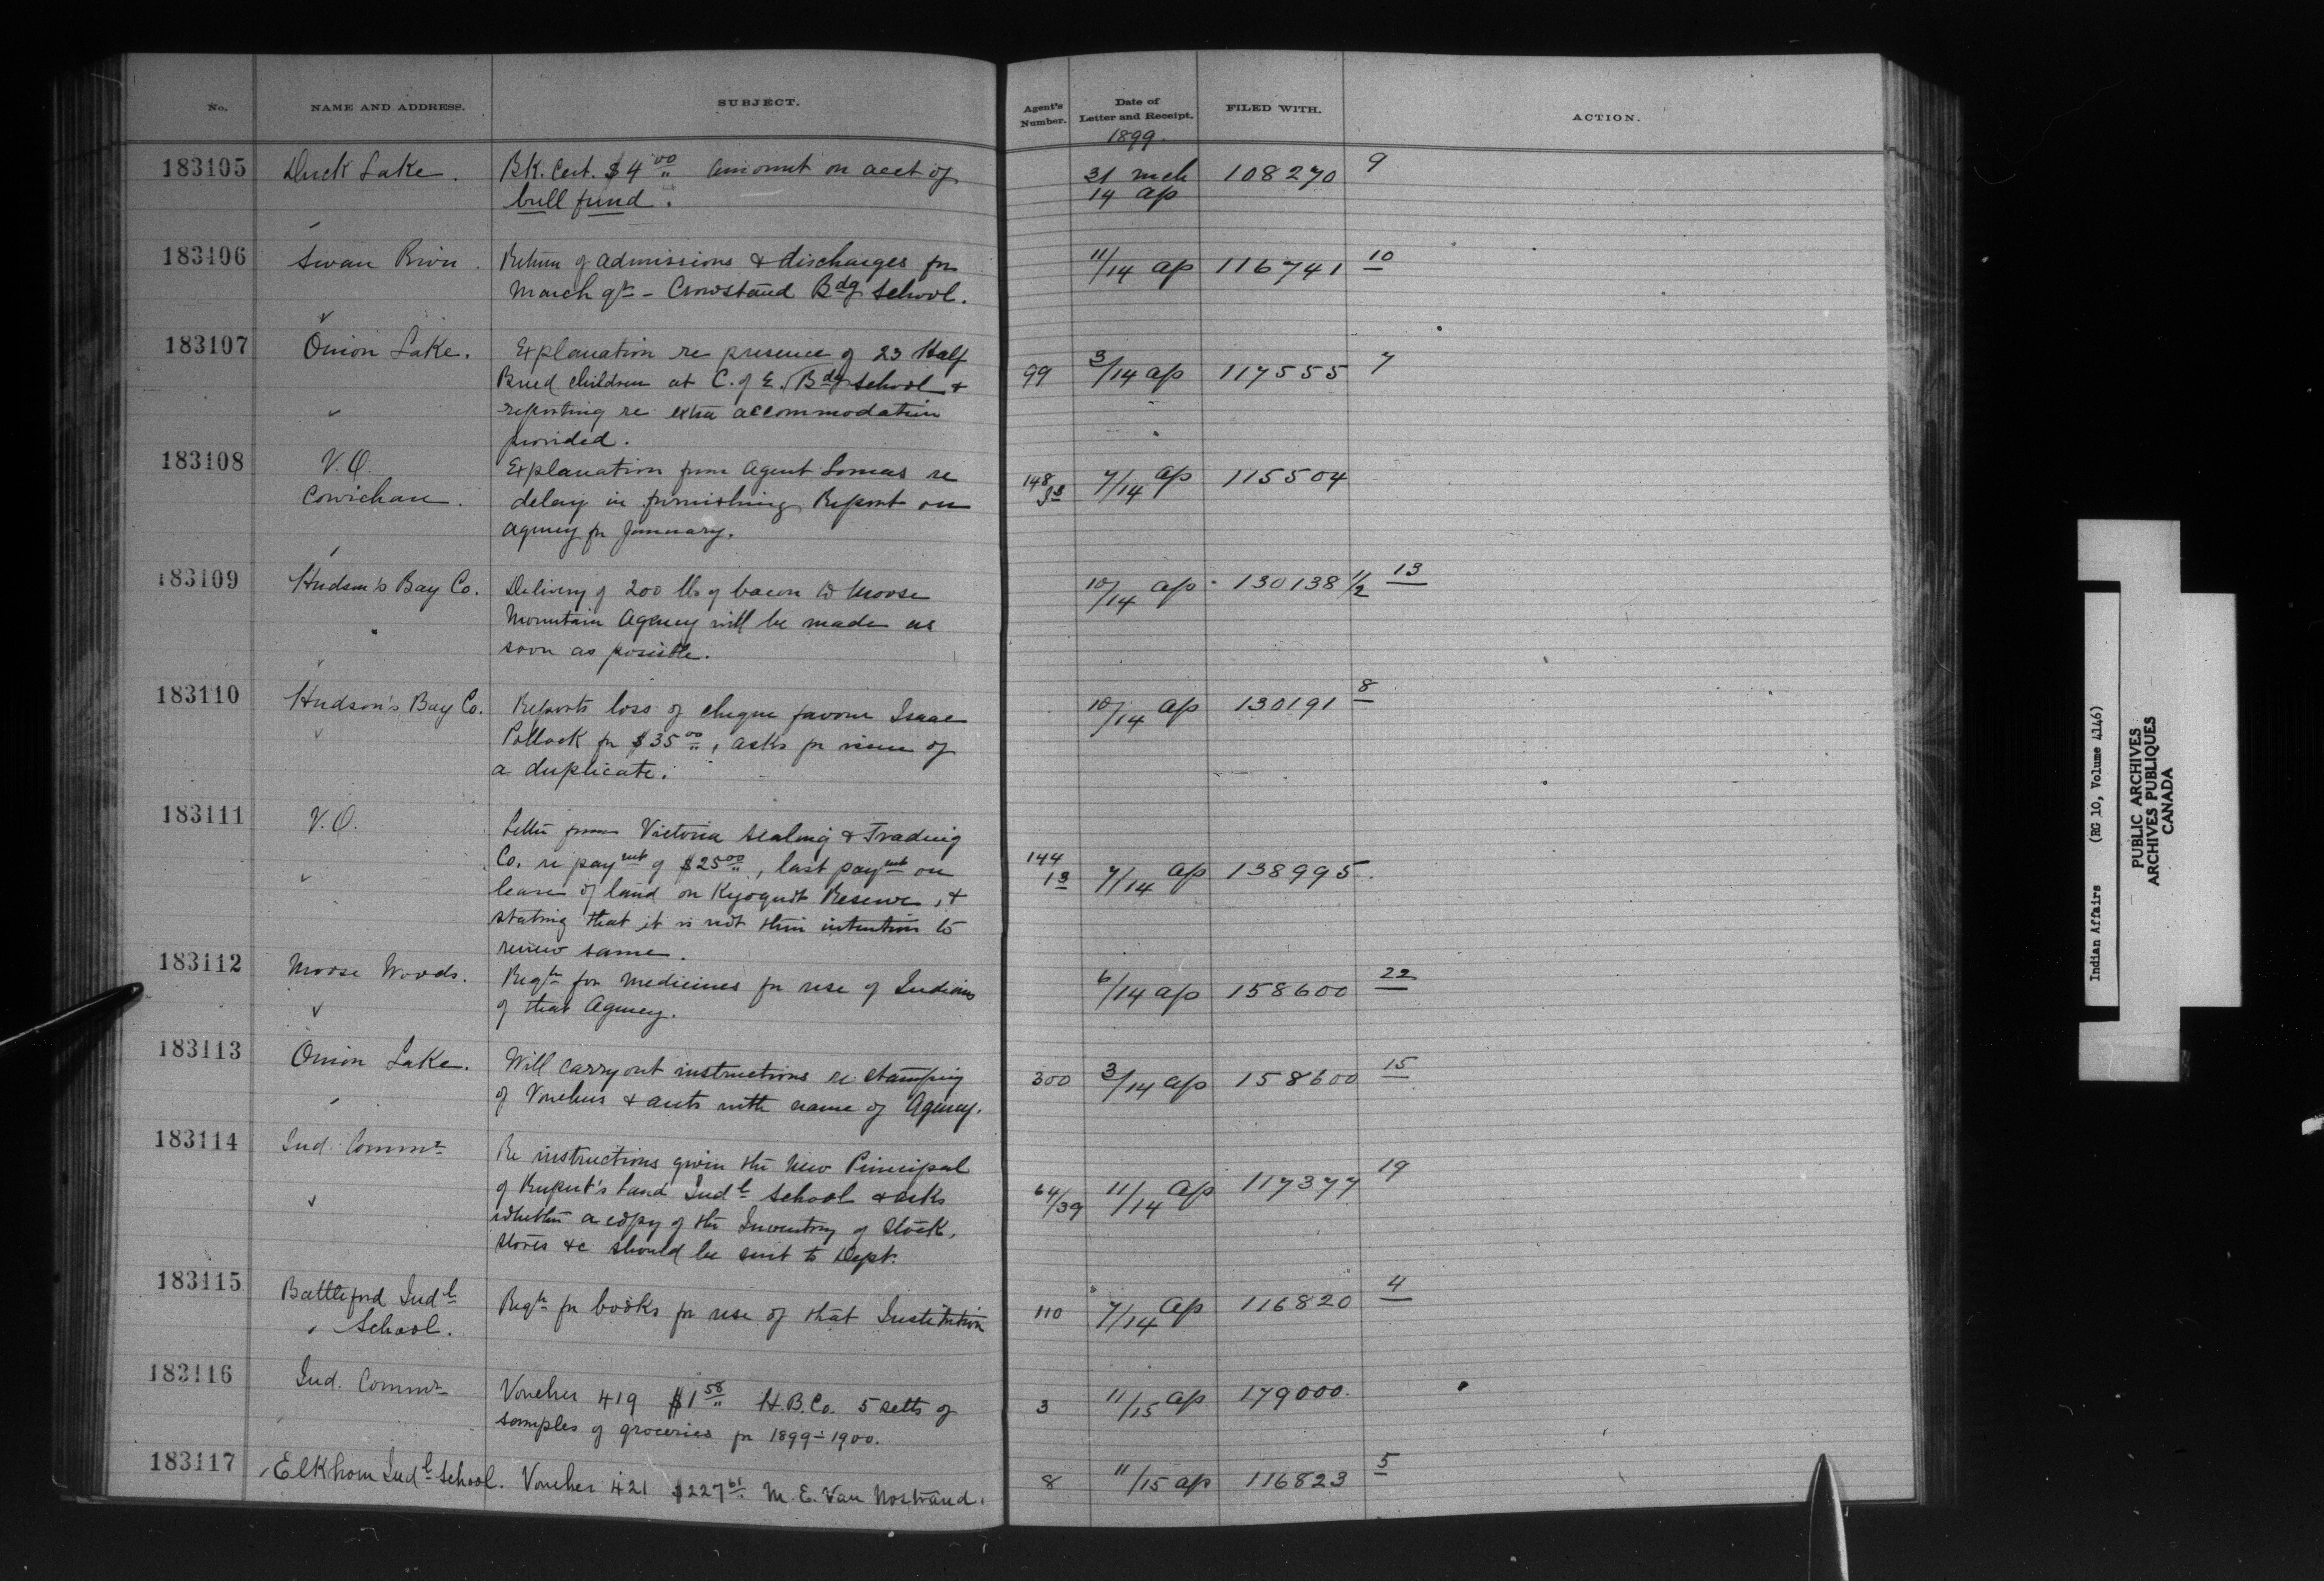 No. NAME AND ADDRESS. SUBJECT. Agent's Number. Date of Letter and Receipt. FILED WITH. ACTION.
1899.
183105 Duck Lake. Bk. Cert. $4.00 amount on acct of 31 Mch 108270 9
bull fund. 14 ap
183106 Swan River. Return of admissions & discharges for 11/14 ap 116741 10
March qr - Crowstand Bdg School.
183107 Onion Lake. Explanation re presence of 23 Half
Breed children at C. of E. Bdg School & 99 3/14 ap 117555 7
reporting re extra accommodation
provided.
183108 V.O. Explanation from Agent Lomas re
Cowichan. delay in furnishing Report on 148 33 7/14 ap 115504
agency for January.
183109 Hudson's Bay Co. Delivery of 200 lbs of bacon to Moose 10/14 ap 130138 1/2 13
Mountain Agency will be made as
soon as possible.
183110 Hudson's Bay Co. Reports loss of cheque favour Isaac 10/14 ap 130191 8
Pollock for $35.00, asks for issue of
a duplicate.
183111 V.O. Letter from Victoria Sealing & Trading
Co. re paymt of $25.00, last paymt on 144 13 7/14 ap 138995.
lease of land on Kyoquot Reserve, &
stating that it is not their intention to
renew same.
183112 Moose Woods. Reqn for medicines for use of Indians 6/14 ap 158600 22
of that Agency.
183113 Onion Lake. Will carry out instructions re stamping 300 3/14 ap 158600 15
of Vouchers & accts with name of Agency.
183114 Ind. Commr Re instructions given the new Principal
of Rupert's Land Indl School & asks 64/39 11/14 ap 117377 19
whether a copy of the Inventory of stock,
stores &c should be sent to Dept.
183115 Battleford Indl Reqn for books for use of that Institution 110 7/14 ap 116820 4
School.
183116 Ind. Commr Voucher 419 $1.58 H.B.Co. 5 setts of 3 11/15 ap 179000.
samples of groceries for 1899-1900.
183117 Elkhorn Indl School. Voucher 421 $227.61 M. E. Van Nostrand. 8 11/15 ap 116823 5
Indian Affairs (RG 10, Volume 4146)
PUBLIC ARCHIVES
ARCHIVES PUBLIQUES
CANADA